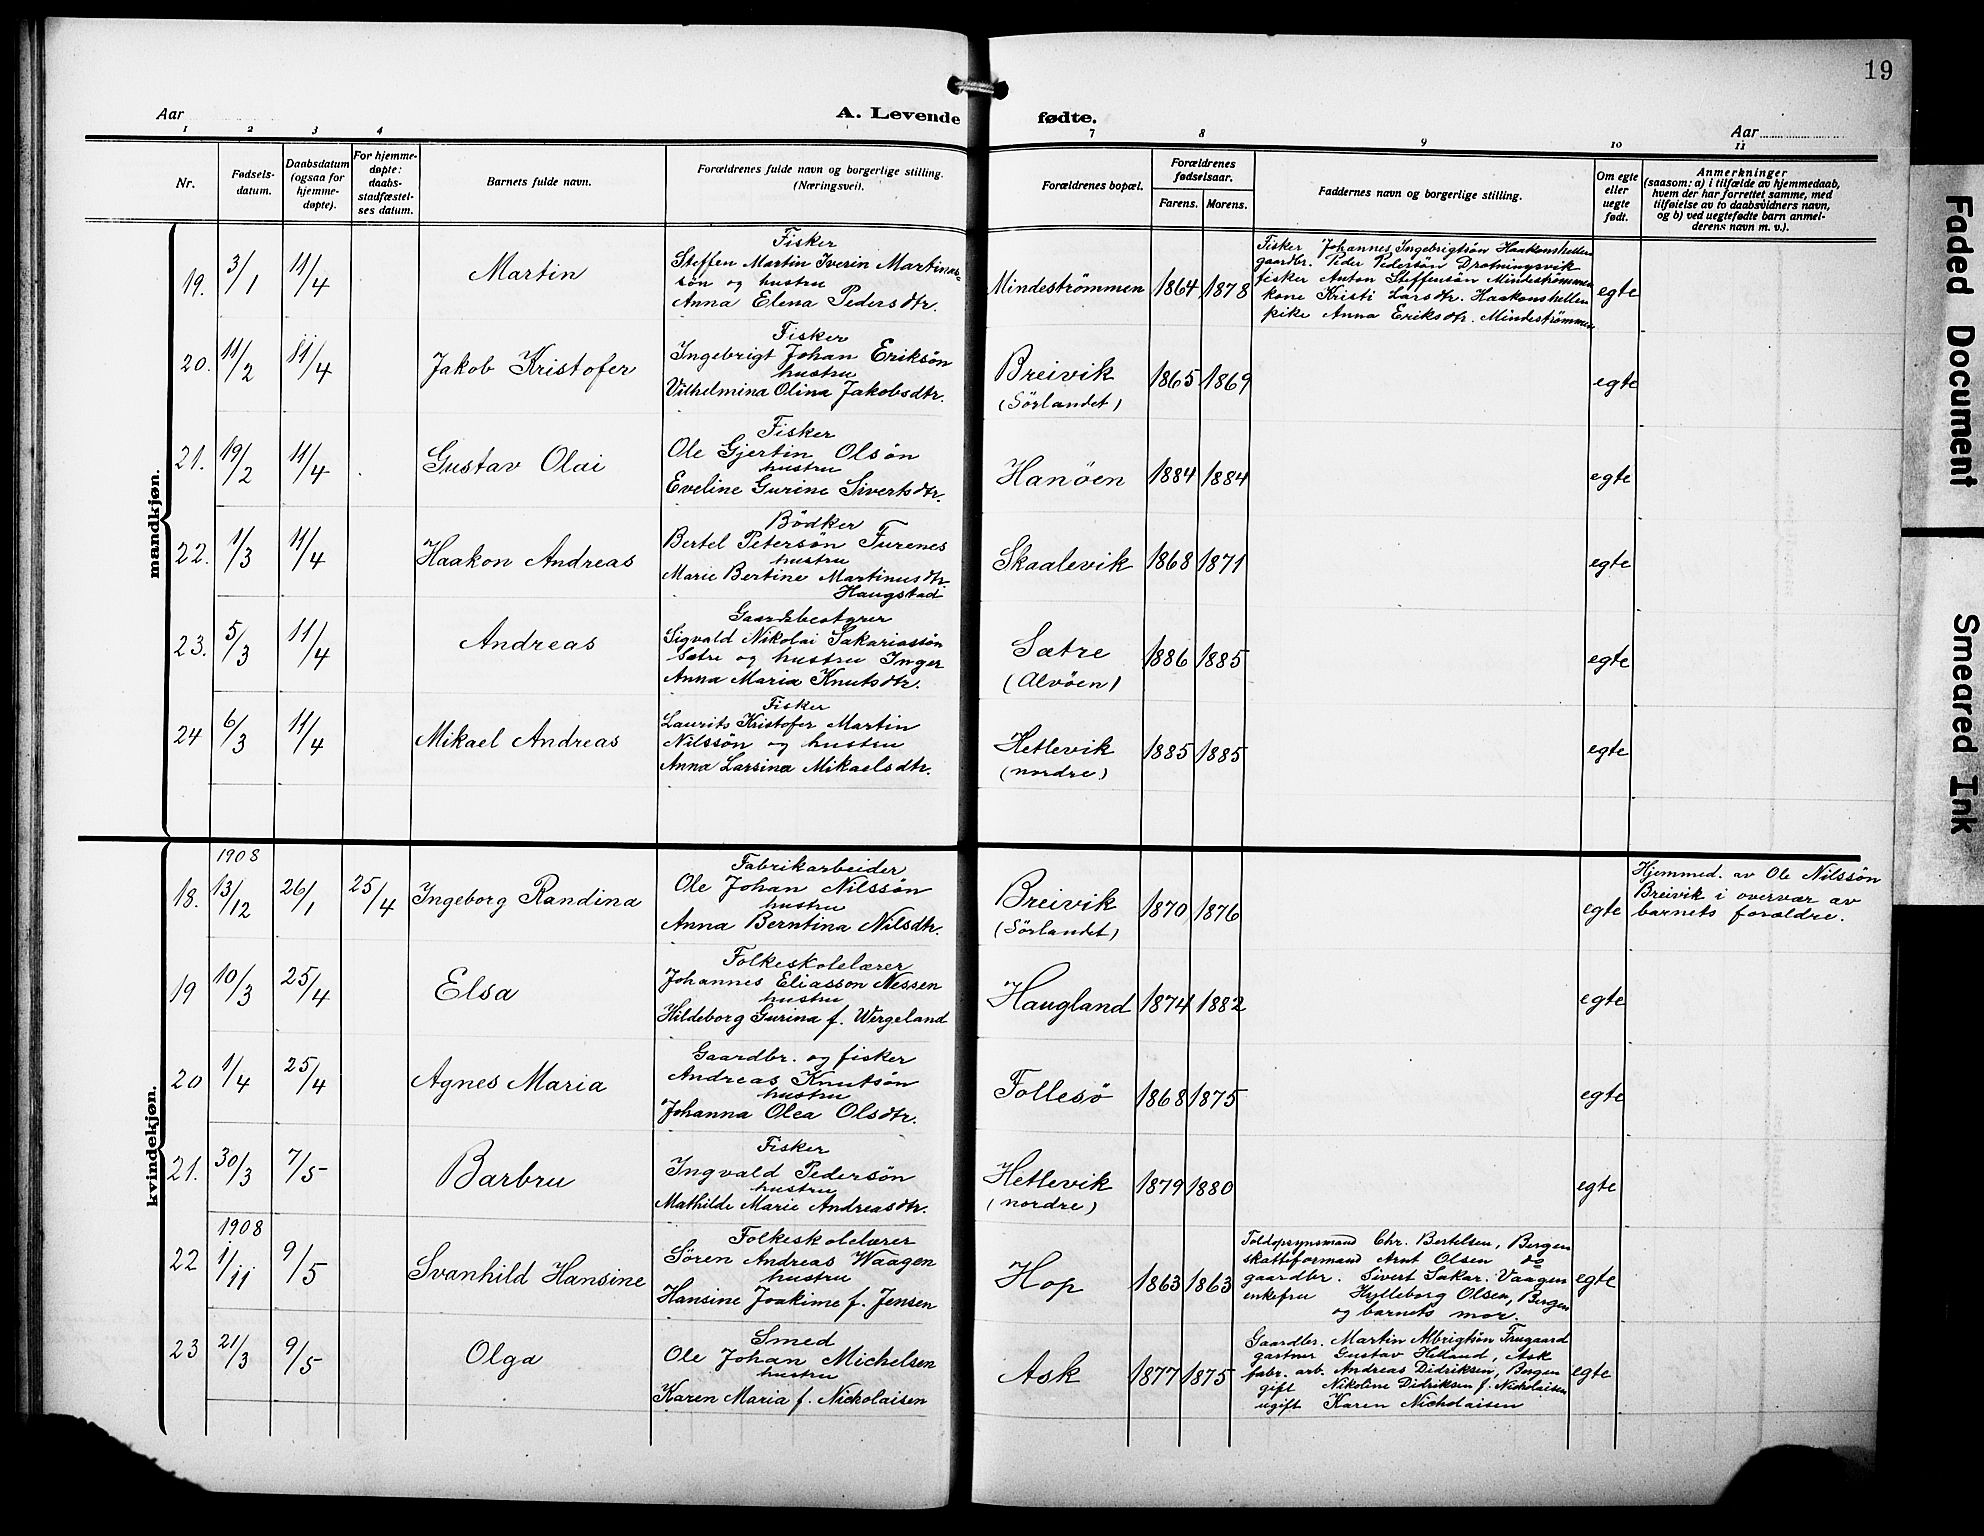 19
Aar
A. Levende fødte.
Aar
1 2 3 4 7 8 9 10 11
Nr.
Fødsels-
datum.
Daabsdatum
(ogsaa for
hjemme-
døpte).
For hjemme-
døpte:
daabs-
stadfæstel-
ses datum.
Barnets fulde navn.
Forældrenes fulde navn og borgerlige stilling.
(Næringsvei).
Forældrenes bopæl.
Forældrenes
fødselsaar.
Farens. Morens.
Faddernes navn og borgerlige stilling.
Om egte
eller
uegte
født.
Anmerkninger
(saasom: a) i tilfælde av hjemmedaab,
hvem der har forrettet samme, med
tilføielse av to daabsvidners navn,
og b) ved uegtefødte barn anmel-
derens navn m. v.).
mandkjøn.
19. 3/1 11/4 Martin
Fisker
Steffen Martin Iverin Martinus-
søn og hustru
Anna Elena Pedersdtr.
Mindeströmmen 1864 1878
Fisker Johannes Ingebrigtsön Haakonshellen
gaardbr. Peder Pedersön Drotningsvik
fisker Anton Steffensön Mindeströmmen
kone Kristi Larsdtr. Haakonshellen
pike Anna Eriksdtr. Mindeströmmen
egte
20. 11/2 11/4 Jakob Kristofer
Fisker
Ingebrigt Johan Eriksön
hustru
Vilhelmina Olina Jakobsdtr.
Breivik
(Sörlandet)
1865 1869 egte
21. 19/2 11/4 Gustav Olai
Fisker
Ole Gjertin Olsön
hustru
Eveline Gurine Sivertsdtr.
Hanöen 1884 1884 egte
22. 1/3 11/4 Haakon Andreas
Bödker
Bertel Petersön Furenes
hustru
Marie Bertine Martinusdtr.
Haugstad
Skaalevik 1868 1871 egte
23. 5/3 11/4 Andreas
Gaardsbestyrer
Sigvald Nikolai Sakariassön
Sætre og hustru Inger
Anna Maria Knutsdtr.
Sætre
(Alvöen)
1886 1885 egte
24 6/3 11/4 Mikael Andreas
Fisker
Laurits Kristofer Martin
Nilssön og hustru
Anna Larsina Mikaelsdtr.
Hetlevik
(nordre)
1885 1885 egte
kvindekjøn.
1908
18. 13/12 26/1 25/4 Ingeborg Randina
Fabrikarbeider
Ole Johan Nilssön
hustru
Anna Berntina Nilsdtr.
Breivik
(Sörlandet)
1870 1876 egte
Hjemmed. av Ole Nilssön
Breivik i overvær av
barnets forældre.
19 10/3 25/4 Elsa
Folkeskolelærer
Johannes Eliasson Nessen
hustru
Hildeborg Gurina f. Wergeland
Haugland 1874 1882 egte
20 1/4 25/4 Agnes Maria
Gaardbr. og fisker
Andreas Knutsön
hustru
Johanna Olea Olsdtr.
Follesö 1868 1875 egte
21. 30/3 7/5 Barbru
Fisker
Ingvald Pedersön
hustru
Mathilde Marie Andreasdtr.
Hetlevik
(nordre)
1879 1880 egte
1908
22 1/11 9/5 Svanhild Hansine
Folkeskolelærer
Sören Andreas Waagen
hustru
Hansine Joakime f. Jensen
Hop 1863 1863
Toldopsynsmand Chr. Bertelsen, Bergen
skatteformand Arnt Olsen do
gaardbr. Sivert Sakar. Vaagen
enkefru Hylleborg Olsen, Bergen
og barnets mor.
egte
23 21/3 9/5 Olga
Smed
Ole Johan Michelsen
hustru
Karen Maria f. Nickolaisen
Ask 1877 1875
Gaardbr. Martin Albrigtsön Frugaard
gartner Gustav Helland, Ask
fabr. arb. Andreas Didriksen, Bergen
gift Nikoline Didriksen f. Nicholaisen
ugift Karen Nicholaisen
egte
Faded Document
Smeared Ink